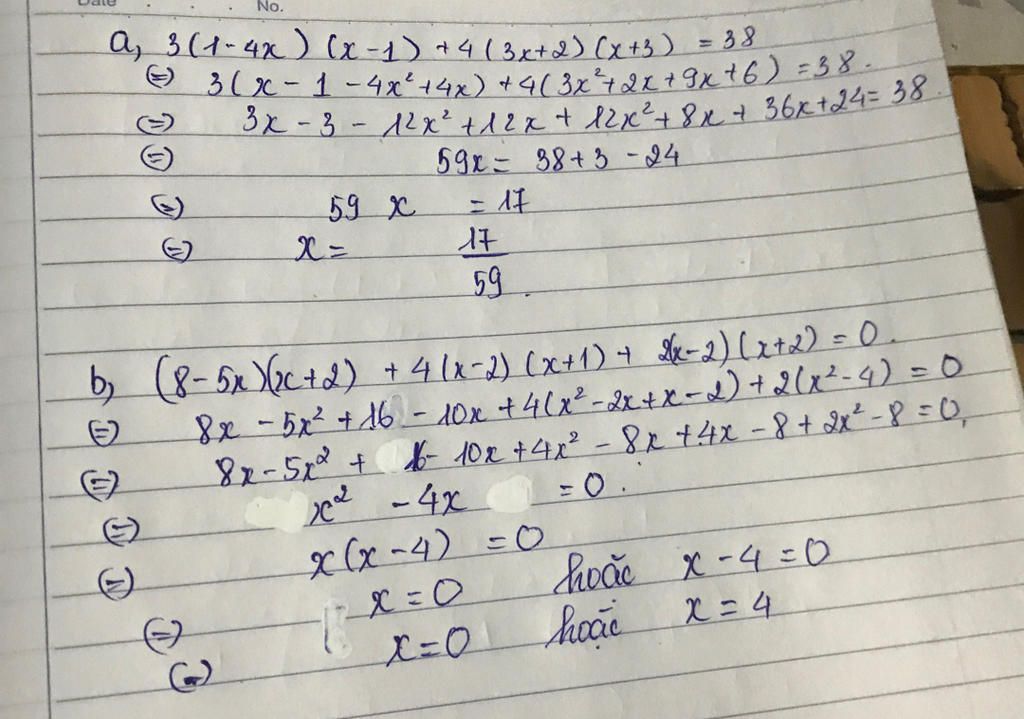 Date . . . No.
a, 3(1-4x) (x-1) + 4(3x+2)(x+3) = 38
(=) 3(x - 1 - 4x² + 4x) + 4(3x² + 2x + 9x + 6) = 38.
(=) 3x - 3 - 12x² + 12x + 12x² + 8x + 36x + 24 = 38
(=) 59x = 38 + 3 - 24
(=) 59 x = 17
(=) x = 17/59.
b, (8-5x)(x+2) + 4(x-2)(x+1) + 2(x-2)(x+2) = 0.
(=) 8x - 5x² + 16 - 10x + 4(x² - 2x + x - 2) + 2(x² - 4) = 0
(=) 8x - 5x² + 16 - 10x + 4x² - 8x + 4x - 8 + 2x² - 8 = 0,
(=) x² - 4x = 0.
(=) x(x-4) = 0
(=) x = 0 hoặc x - 4 = 0
(=) x = 0 hoặc x = 4